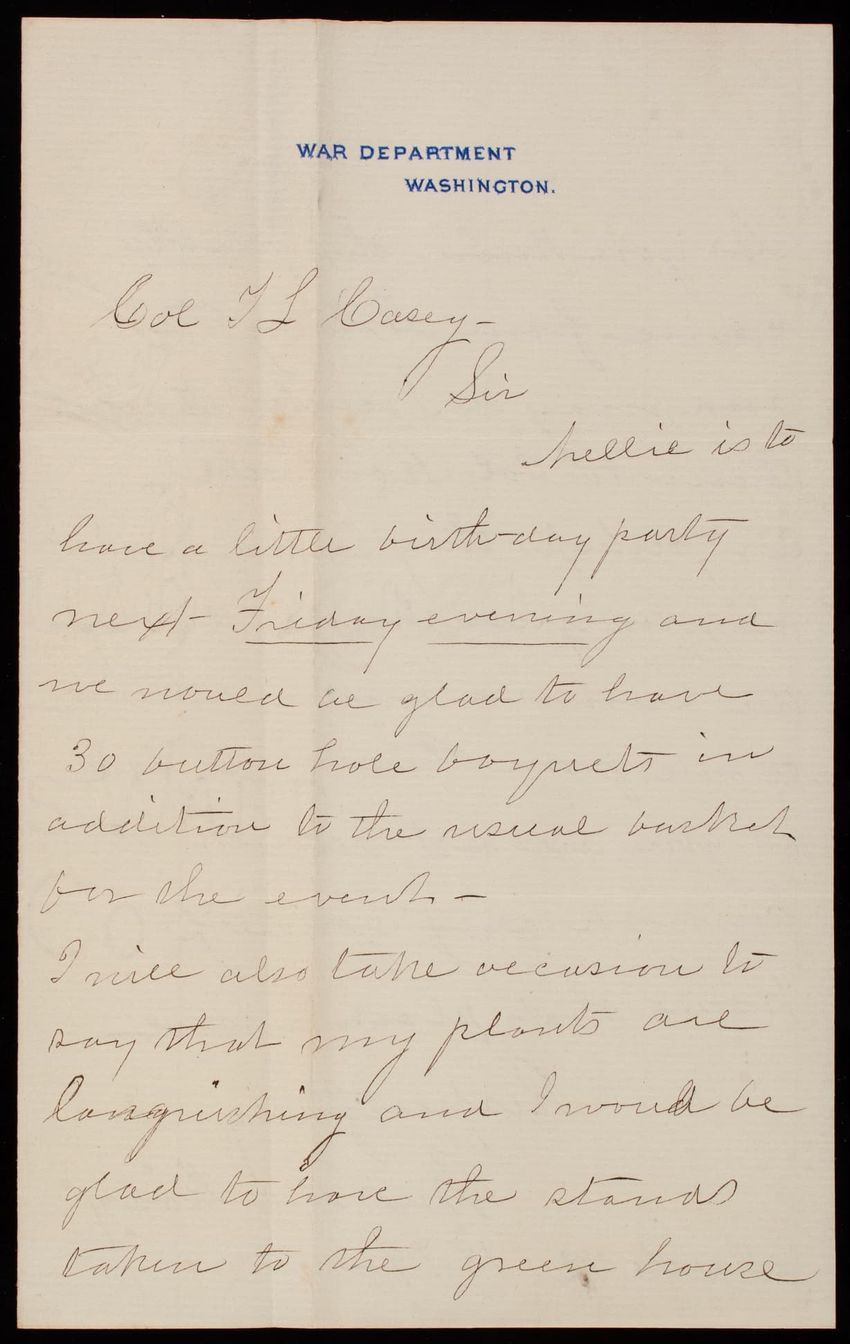 WAR DEPARTMENT
WASHINGTON.
Col T L Casey-
Sir
Nellie is to
have a little birth-day party
next Friday evening and
we would be glad to have
30 button hole boquets in
addition to the usual basket
for the event. -
I will also take occasion to
say that my plants are
languishing and I would be
glad to have the stands
taken to the green house